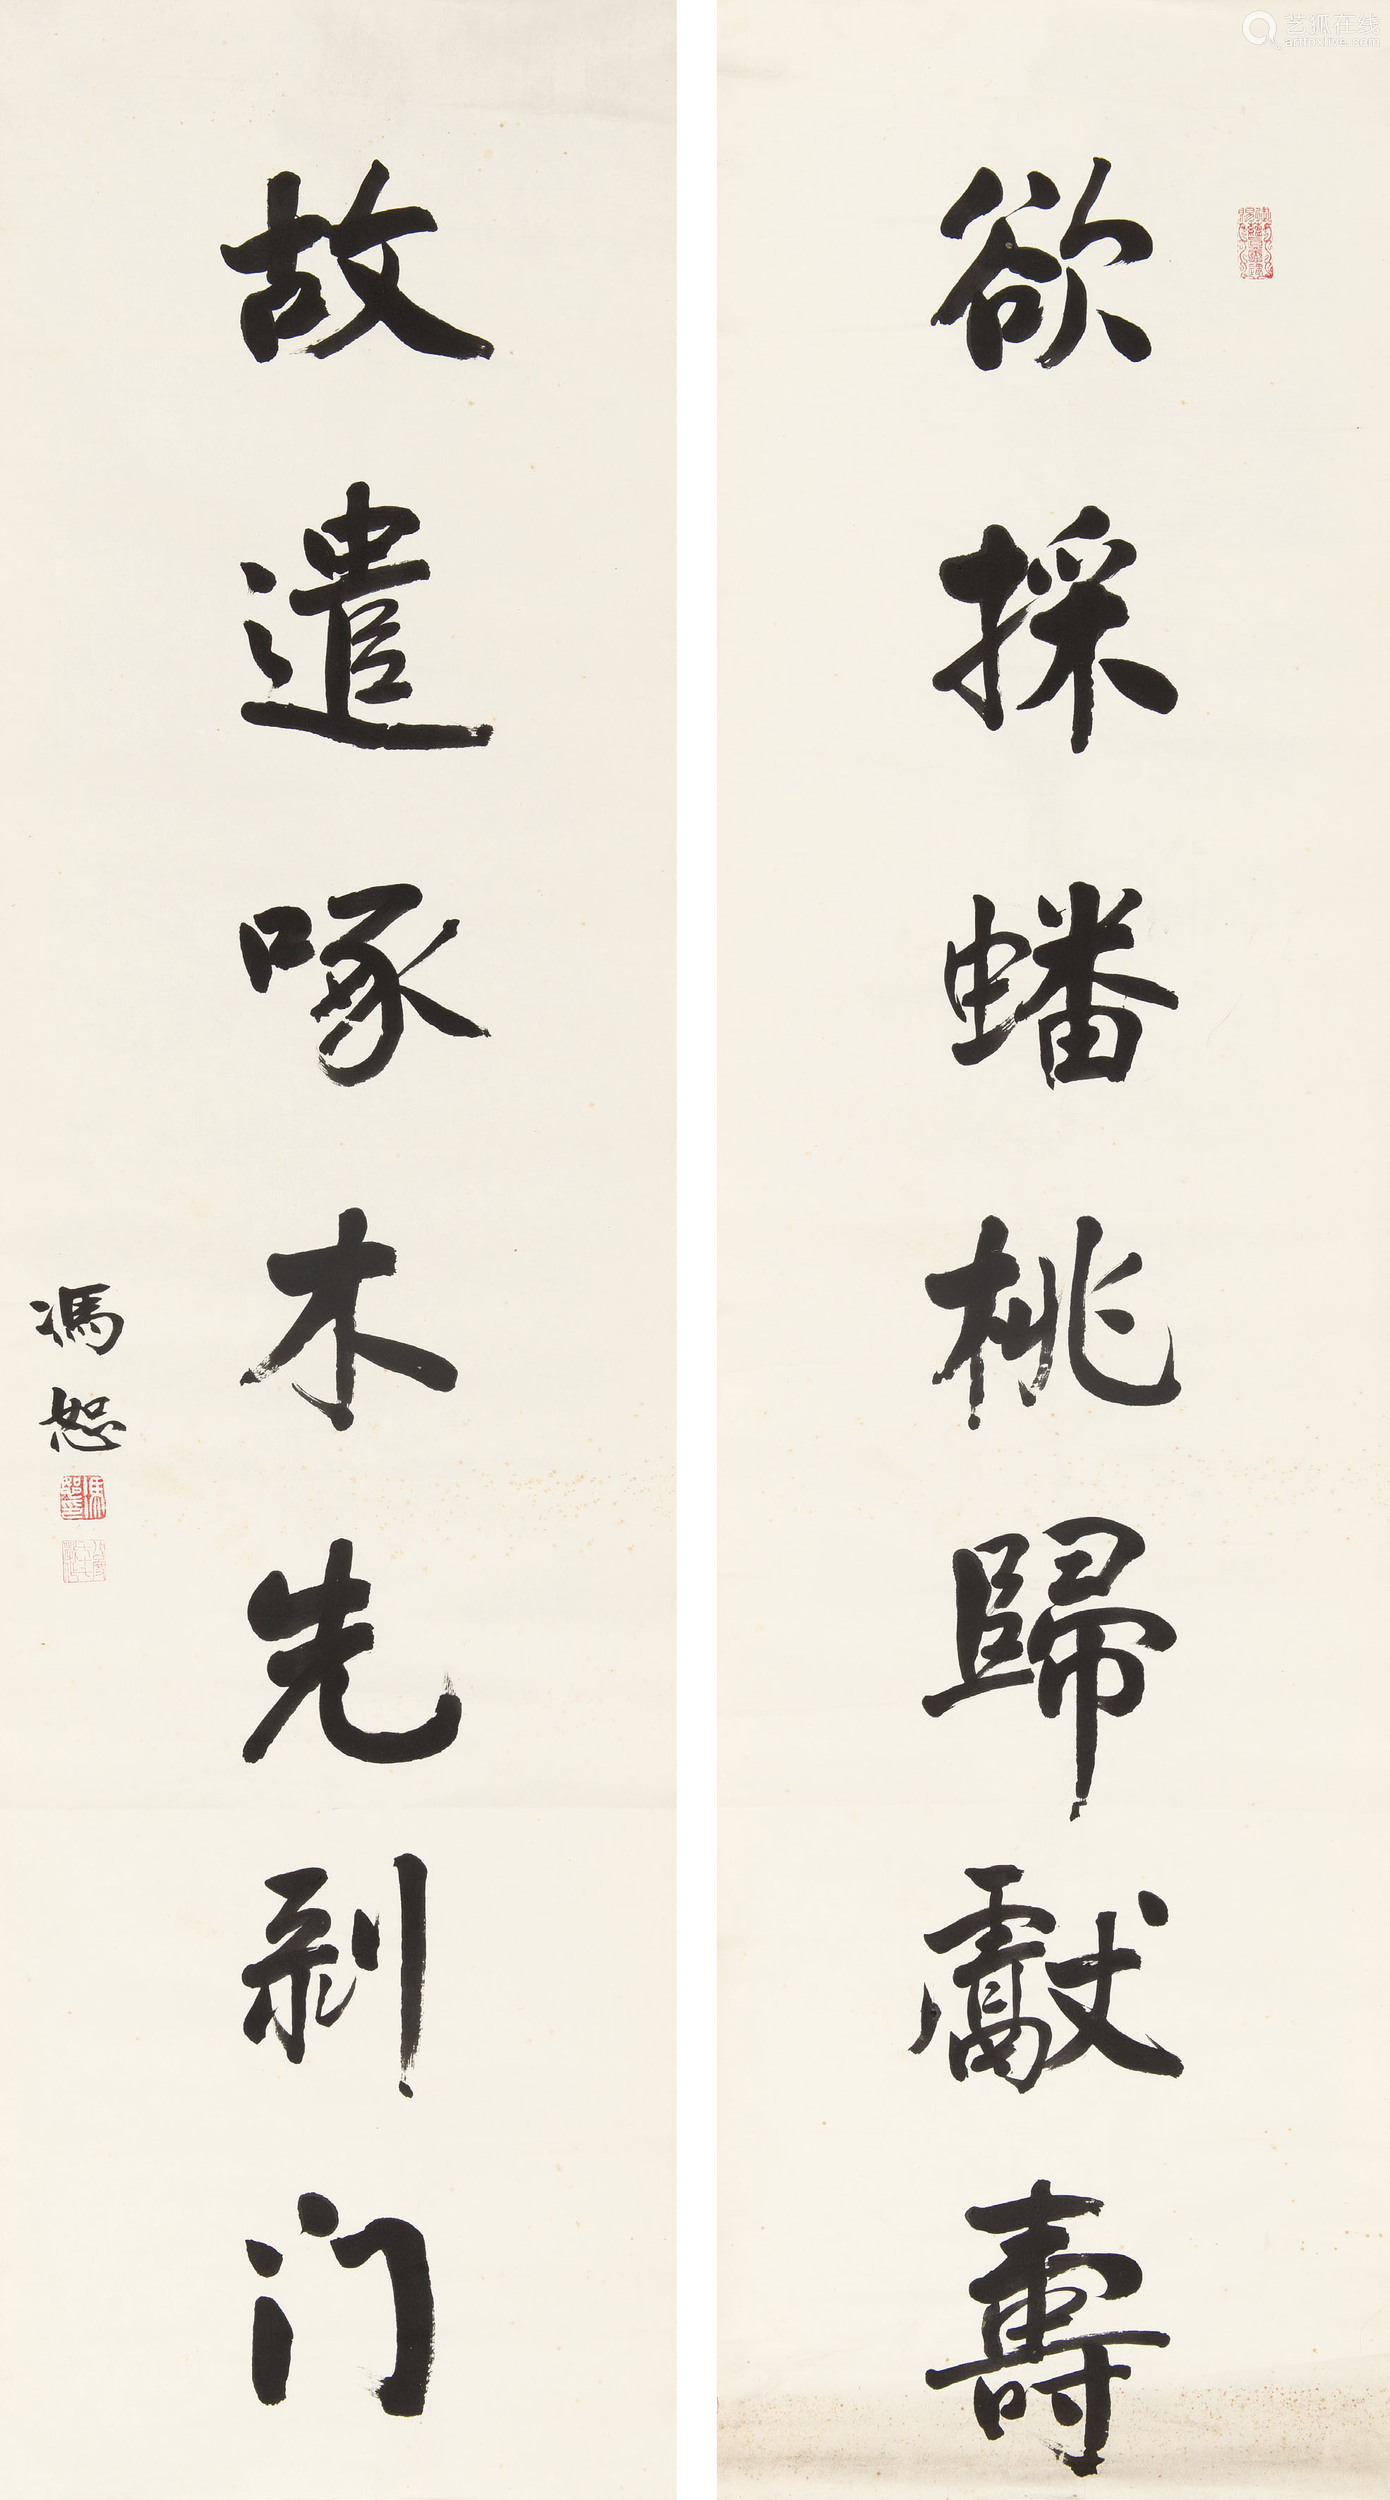 欲採蟠桃歸獻壽
故遣啄木先剥门
馮恕
艺狐在线
artfoxlive.com